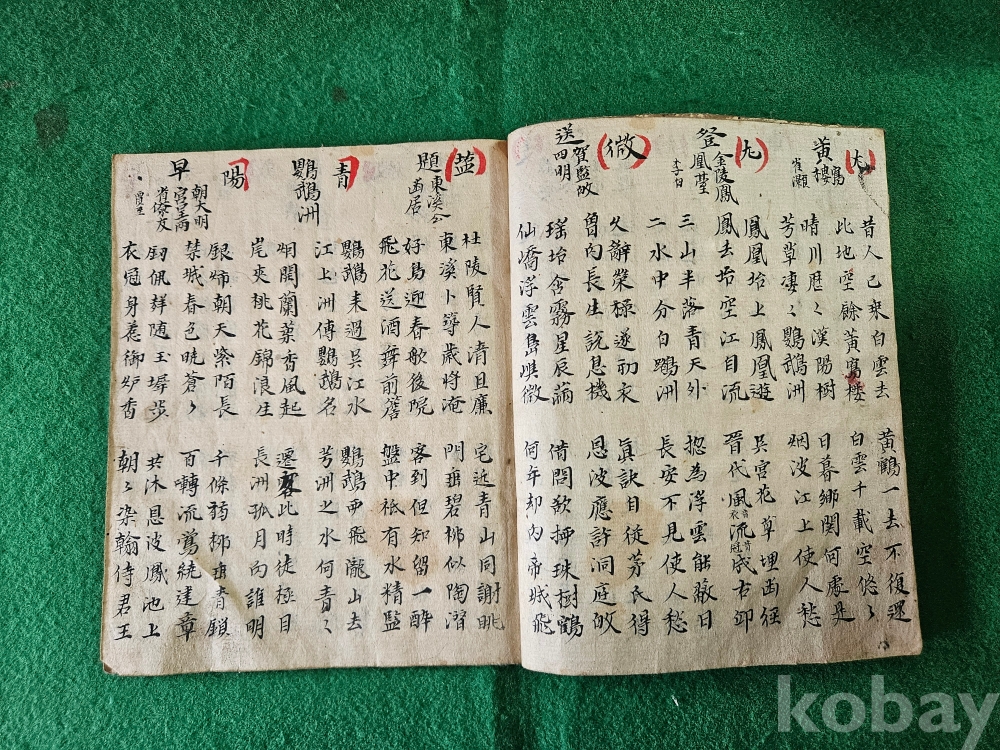 (尤)
黃鶴樓
崔灝
昔人已乘白雲去 黃鶴一去不復還
此地空餘黃鶴樓 白雲千載空悠〻
晴川歷〻漢陽樹 日暮鄉関何處是
芳草凄〻鸚鵡洲 烟波江上使人愁
(尤)
登金陵鳳凰坮
李白
鳳凰坮上鳳凰遊 吳宮花草埋幽徑
鳳去坮空江自流 晉代風流成古邱
三山半落青天外 摠為浮雲能蔽日
二水中分白鷺洲 長安不見使人愁
(微)
送賀監故四明
久辭榮祿遂初衣 眞訣自從茅氏得
曾向長生說息機 恩波應許洞庭故
瑤坮含霧星辰滿 借問欲捿珠樹鶴
仙嶠浮雲島嶼微 何年却向帝城飛
(塩)
題東溪公幽居
杜陵賢人清且廉 宅近青山同謝眺
東溪卜築歲將淹 門垂碧柳似陶潛
好鳥迎春歌後院 客到但知留一醉
飛花送酒舞前簷 盤中祗有水精塩
青
鸚鵡洲
鸚鵡来過吳江水 鸚鵡西飛隴山去
江上洲傳鸚鵡名 芳洲之水何青〻
烟開蘭葉香風起 遷客此時徒極目
岸夾桃花錦浪生 長洲孤月向誰明
陽
早朝大明宮
銀燭朝天紫陌長 千條弱柳垂青鎖
禁城春色曉蒼〻 百囀流鶯繞建章
釼佩聲随玉墀步 共沐恩波鳳池上
衣冠身惹御炉香 朝〻染翰侍君王
kobay